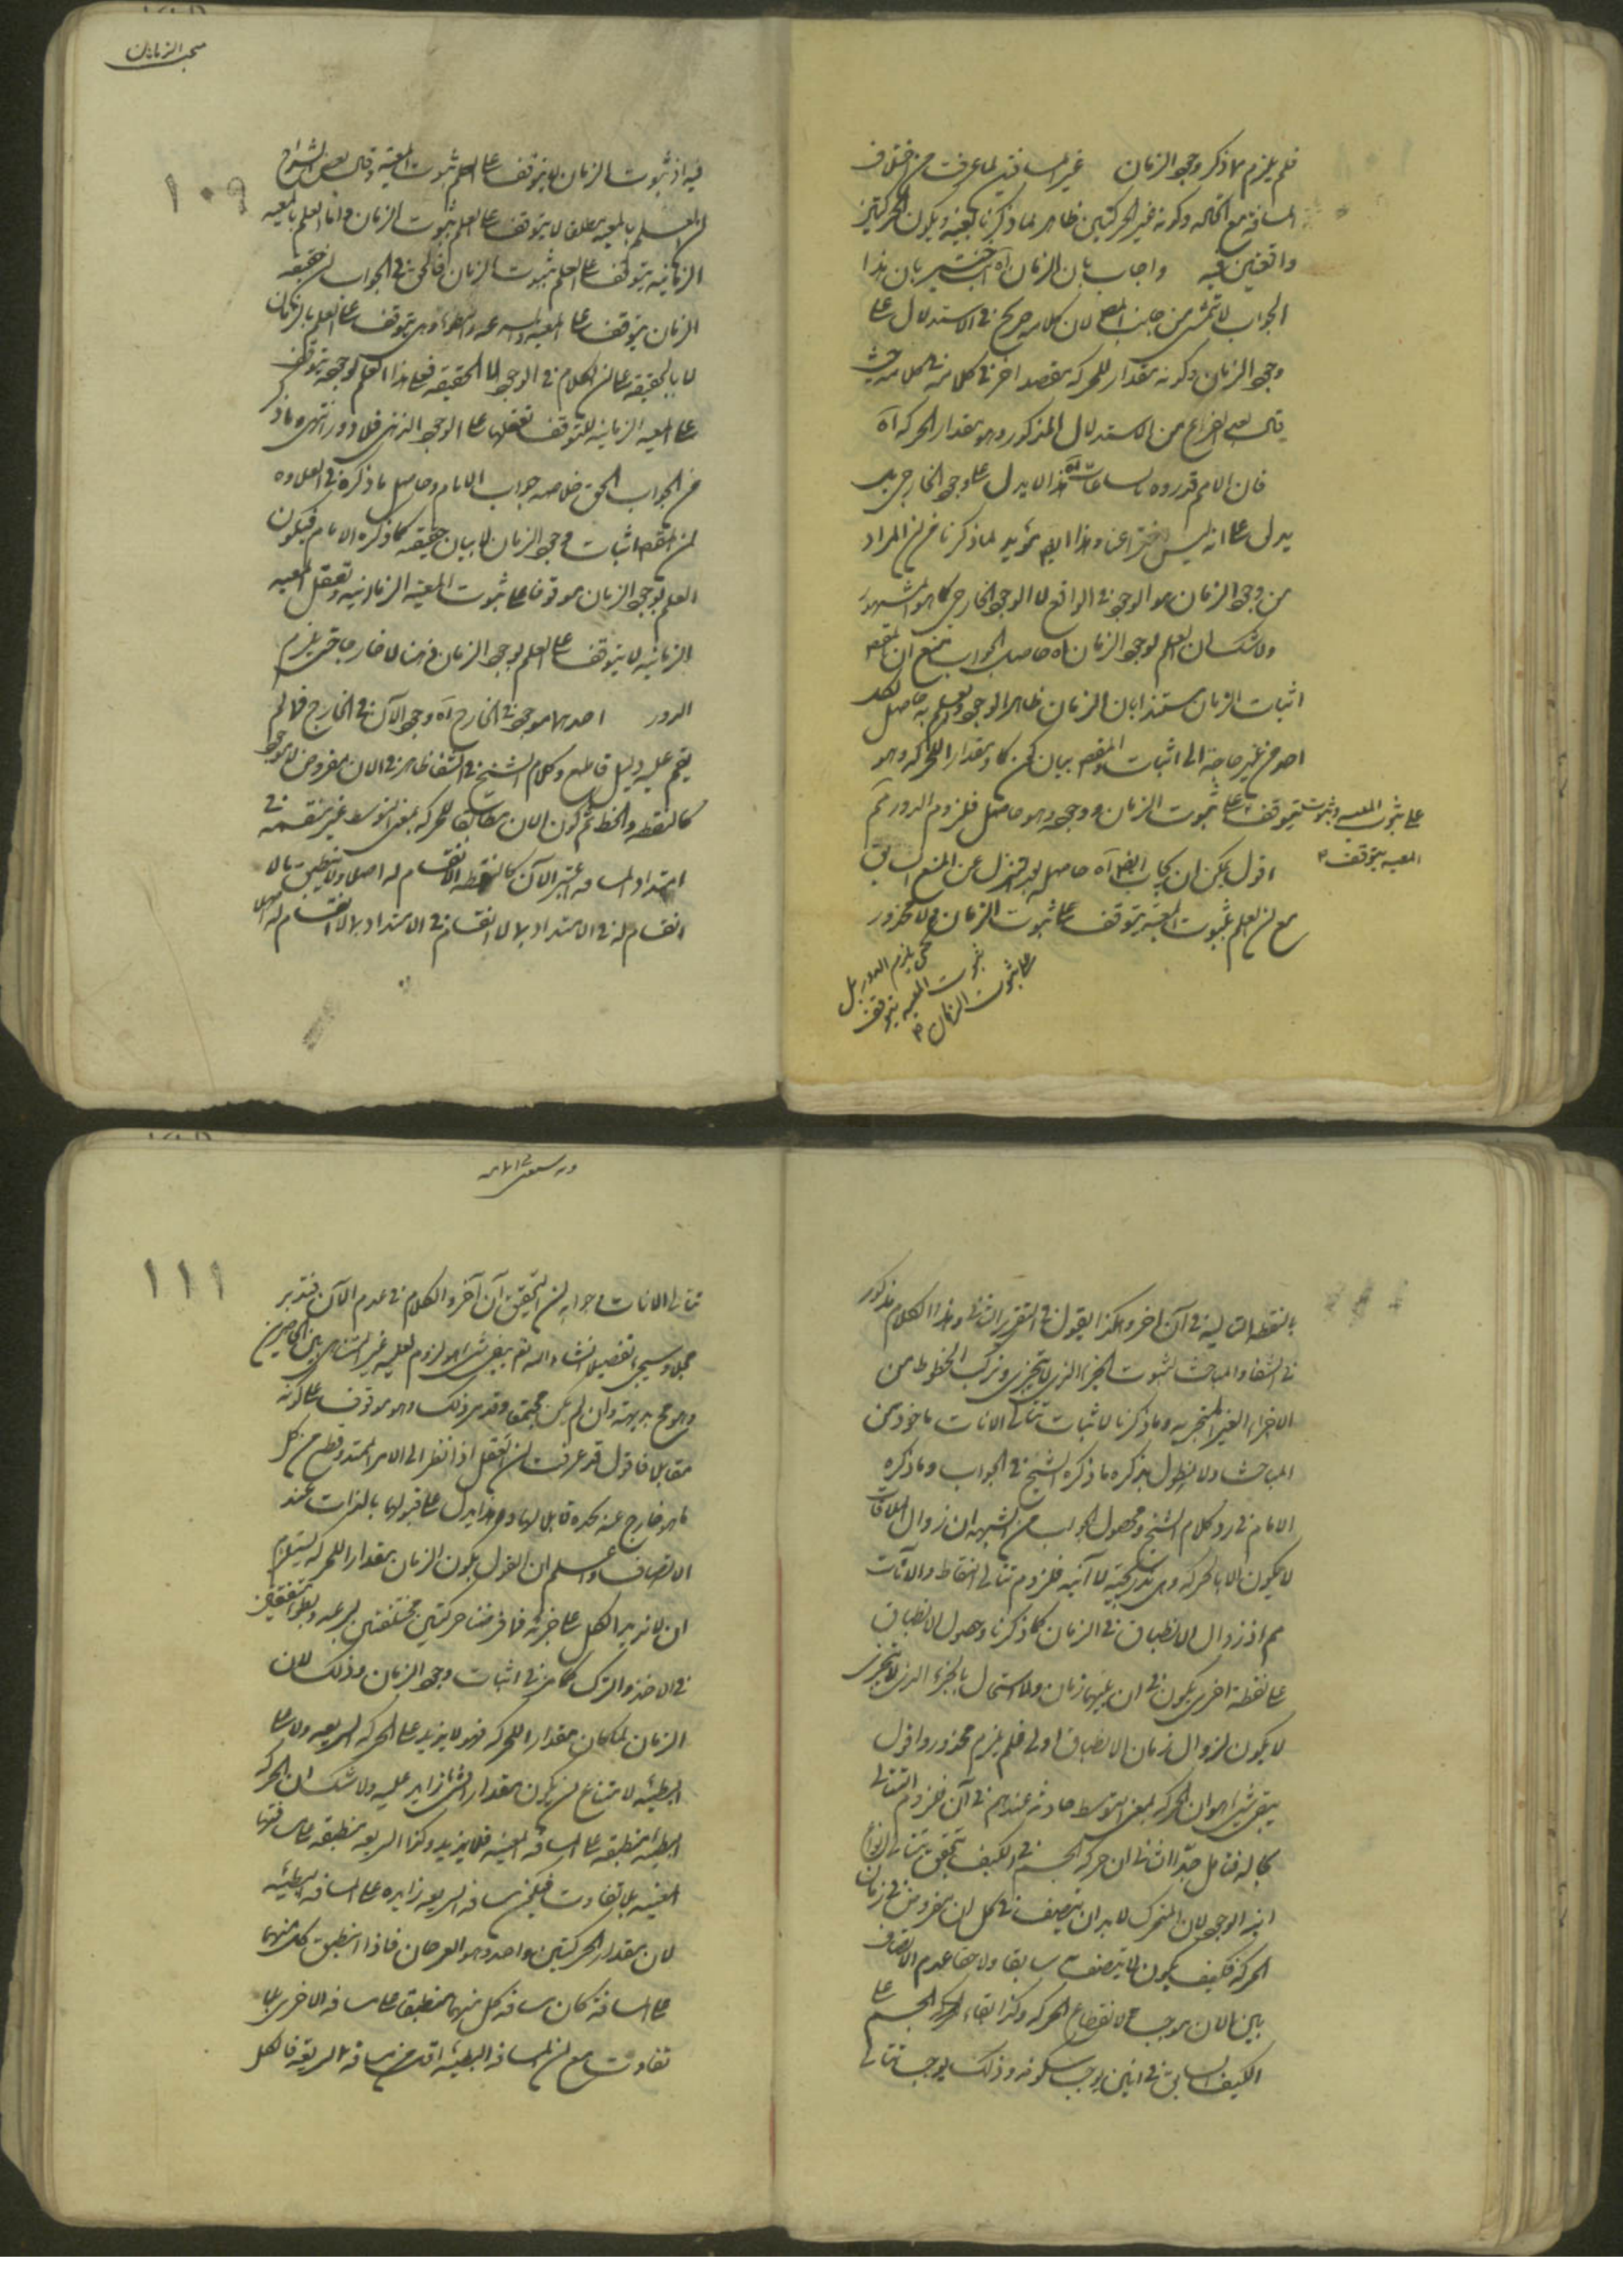 فلم يلزم مما ذكر وجود الزمان غير المسافتين لما عرفت من اختلاف
المسافة مع اتحاده وكونه غير الحركتين ظاهر لما ذكرنا بعينه ويكون الحركتين
واقعتين فيه واجاب بان الزمان اه خبير بان هذا
الجواب لا يتمشى من جانب المص لان كلامه صريح في الاستدلال على
وجود الزمان وكونه مقدار للحركة مقصد اخر في كلامه حيث
قال بعد الفراغ من الاستدلال المذكور وهو مقدار الحركة اه
فان الامم قدروه بالساعات اه هذا لا يدل على وجود الخارجي بل
يدل على انه ليس اختراعنا وهذا ايضا مؤيد لما ذكرنا من ان المراد
من وجود الزمان هو الوجود في الواقع لا الوجود الخارجي كما هو المشهور
ولا شك ان العلم بوجود الزمان اه حاصل الجواب منع ان المقصد
اثبات الزمان مستندا بان الزمان ظاهر الوجود والعلم به حاصل لكل
احد من غير حاجة الى اثبات والمقصد بيان كونه مقدارا للحركة وهو
يتوقف على ثبوت الزمان ووجوده وهو حاصل فلزوم الدور مم
على ثبوت المعية وثبوت
المعية يتوقف
اقول يمكن ان يجاب ايضا اه حاصله بعد التنزل عن المنع السابق
مع ان العلم بثبوت المعية يتوقف على ثبوت الزمان ولا محذور
حتى يلزم الدور بل
ثبوت المعية يتوقف
على ثبوت الزمان
مبحث الزمان
١٠٩
فيه اذ ثبوت الزمان لا يتوقف على العلم بثبوت المعية وقال بعض الشراح
ان العلم بالمعية مطلقا لا يتوقف على العلم بثبوت الزمان وانما العلم بالمعية
الزمانية يتوقف على العلم بثبوت الزمان فالحق في الجواب ان حقيقة
الزمان يتوقف على المعية والسرعة والبطوء وهي يتوقف على العلم بالزمان
لا بالحقيقة على ان الكلام في الوجود لا الحقيقة فعلى هذا العلم بوجوده يتوقف
على المعية الزمانية المتوقف تعقلها على الوجود الذهني فلا دور انتهى وما ذكر
من الجواب الحق خلاصة جواب الامام وحاصل ما ذكره في العلاوة
ان المقصد اثبات وجود الزمان لا بيان حقيقته كما ذكره الامام فيكون
العلم بوجود الزمان موقوفا على ثبوت المعية الزمانية وتعقل المعية
الزمانية لا يتوقف على العلم بوجود الزمان ذهنا لا خارجا حتى يلزم
الدور احدهما موجود في الخارج اه وجود الآن في الخارج مما لم
يقم عليه دليل قاطع وكلام الشيخ في الشفا ظاهر في ان الان مفروض لا موجود
كالنقطة والخط ثم كون الان مطابقا للحركة بمعنى التوسط غير منقسمة في
امتداد المسافة اعتبر الآن كالنقطة لا انقسام له اصلا ولا ينطبق بما لا
انقسام له في الامتداد بل لا انقسام في الامتداد بل لا انقسام له اصلا
بالنقطة التالية في آن اخر وهكذا يقول في التقرير الثاني وهذا الكلام مذكور
في الشفا والمباحث لثبوت الجزء الذي لا يتجزى وتركب الخطوط من
الاجزاء الغير المتجزية وما ذكرنا لاثبات تتالي الانات ماخوذ من
المباحث ولا نطول بذكره ما ذكره الشيخ في الجواب وما ذكره
الامام في رد كلام الشيخ ومحصول الجواب من الشبهة ان زوال الملاقات
لا يكون الا بالحركة وهي تدريجية لا آنية فلزوم تتالي النقاط والانات
مم اذ زوال الانطباق في الزمان كما ذكرنا وحصول الانطباق
على نقطة اخرى يكون في ان بينهما زمان ولا استحال بالجزء الذي لا يتجزى
لا يكون لزوال زمان الانطباق اولى فلم يلزم محذور واقول
يبقى شيء هو ان الحركة بمعنى التوسط حادثة عندهم في آن فلزوم التتالي
بحاله فتامل جدا الثاني ان حركة الجسم في الكيف تحقق تتالي انواع
آنية الوجود لان المتحرك لا بد ان يتصف في كل ان مفروض في زمان
الحركة فكيف يكون لا يتصف به سابقا ولا حقا عدم الاتصاف
بين الان يوجب لانقطاع الحركة وكذا ابقاء الجسم على
الكيف السابق في انين يوجب سكونه وذلك يوجب تتالي
١١١
تتالي الانات جوابه ان التحقيق آن آخر والكلام في عدم الآن فتدبر
مجملا وسيجيء تفصيله انشاء الله تعم يبقى شيء هو لزوم لعليه غير المتناهي بين الحاصرين
وهو مح بديهة وان لم يكن مجتمعة وقد مر ذلك وهو موقوف على كونه
مقابل فاقول قد عرفت ان العقل اذا نظر الى الامر الممتد وقطع من كل
ما هو خارج عنه يحده قابلا لها وهذا يدل على قبولها بالذات عند
الانصاف واعلم ان القول بكون الزمان مقدارا للحركة يستلزم
ان لا يزيد الكل على جزئه فافرضنا حركتين مختلفتين بسرعة وبطوء متفقتين
في الاخذ والترك كما مر في اثبات وجود الزمان وذلك لان
الزمان لما كان مقدارا للحركة فهو لا يزيد على الحركة السريعة ولا على
البطيئة لامتناع ان يكون مقدار الشيء زايد عليه ولا شك ان الحركة
البطيئة منطبقة على المسافة المعينة فلا يزيد وكذا السريعة منطبقة على مسافتها
المعينة بلا تفاوت فيلزم مسافة السريعة زايدة على المسافة البطيئة
لان مقدار الحركتين واحد وهو العرضان فاذا انطبق كل منهما
على المسافة كان مسافة كل منهما منطبقة على مسافة الاخرى بلا
تفاوت مع ان المسافة البطيئة اقل من مسافة السريعة فالكل